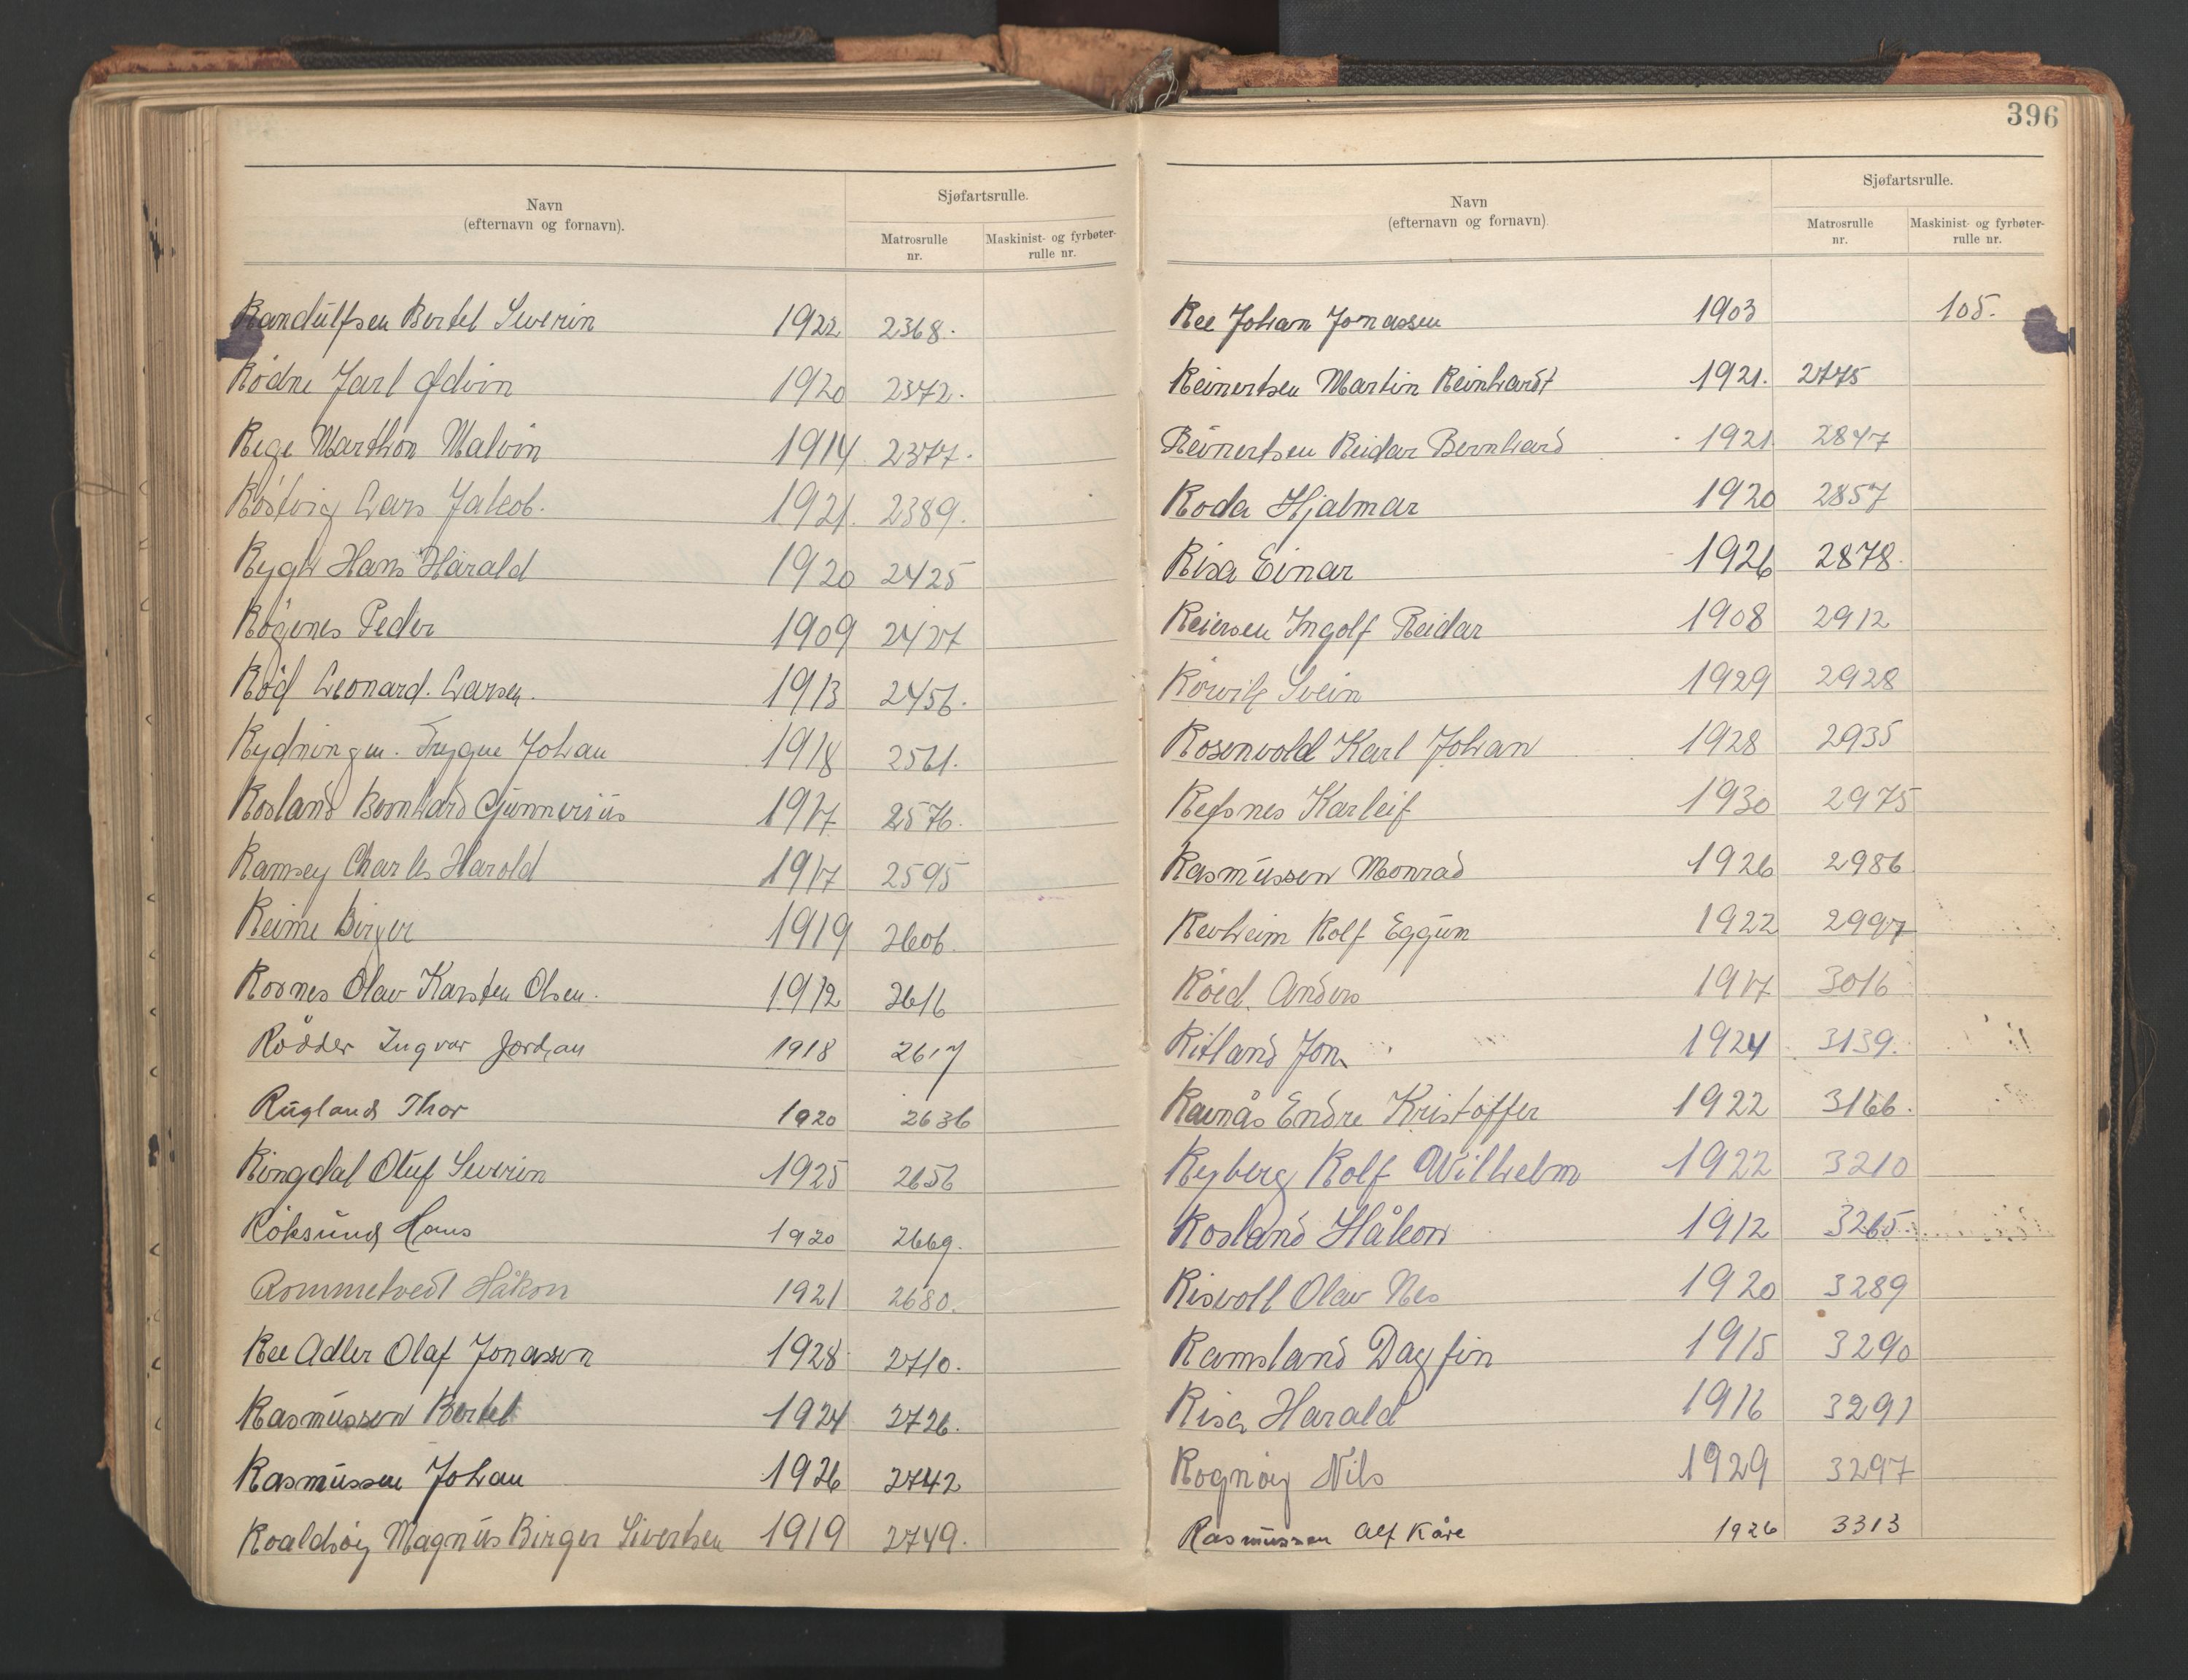 Navn
(efternavn og fornavn).
Sjøfartsrulle.
Matrosrulle nr.
Maskinist- og fyrbøter-rulle nr.
Randulfsen Bertel Severin 1922 2368.
Rødne Jarl Edvin 1920 2372.
Rege Marthon Malvin 1914 2377.
Röstvig Lars Jakob. 1921. 2389.
Rygh Hans Harald 1920 2425
Rögenes Peder 1909 2427
Röd Leonard. Larsen. 1913 2456.
Rydningen. Trygve Johan 1918 2561.
Rosland Bernhard Gunnerius 1917 2576.
Ramsey Charles Harold 1917 2595
Reime Birger 1919 2606.
Rosnes Olav Karsten Olsen. 1912 2616
Rödder Ingvar Jordjan 1918 2617
Rugland Thor 1920 2636
Ringdal Oluf Severin 1925 2656
Röksund Hans 1920 2669.
Rommetvedt Håkon 1921 2680.
Ree Adler Olaf Jonassen 1928 2710.
Rasmussen Bertel 1924 2726.
Rasmussen Johan 1926 2742
Roaldsöy Magnus Birger Sivertsen 1919 2749.
396
Navn
(efternavn og fornavn)
Sjøfartsrulle.
Matrosrulle nr.
Maskinist- og fyrbøter-rulle nr.
Ree Johan Jonassen 1903 105.
Reinertsen Martin Reinhardt 1921. 2775
Reinertsen Reidar Bernhard 1921 2847
Roda Hjalmar 1920 2857
Risa Einar 1926 2878.
Reiersen Ingolf Reidar 1908 2912
Rörvik Svein 1929 2928
Rosenvold Karl Johan 1928 2935
Refsnes Karleif 1930 2975
Rasmussen Monrad 1926 2986
Revheim Rolf Eggun 1922 2997
Röed Anders 1917 3016
Ritland Jon 1924 3139.
Ramås Endre Kristoffer 1922 3166.
Ryberg Rolf Wilhelm 1922 3210
Rosland Håkon 1912 3265.
Risvoll Olav Nes 1920 3289
Ramsland Dagfin 1915 3290
Risa Harald 1916 3291
Rognöy Nils 1929 3297
Rasmussen Alf Kåre 1926 3313